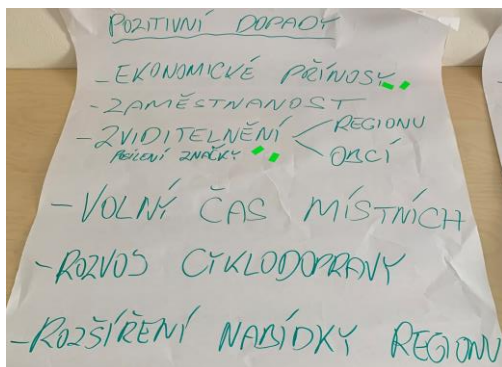 POZITIVNÍ DOPADY
- EKONOMICKÉ PŘÍNOSY
- ZAMĚSTNANOST
- ZVIDITELNĚNÍ < REGIONU
POSÍLENÍ ZNAČKY OBCÍ
- VOLNÝ ČAS MÍSTNÍCH
- ROZVOJ CYKLODOPRAVY
- ROZŠÍŘENÍ NABÍDKY REGIONU